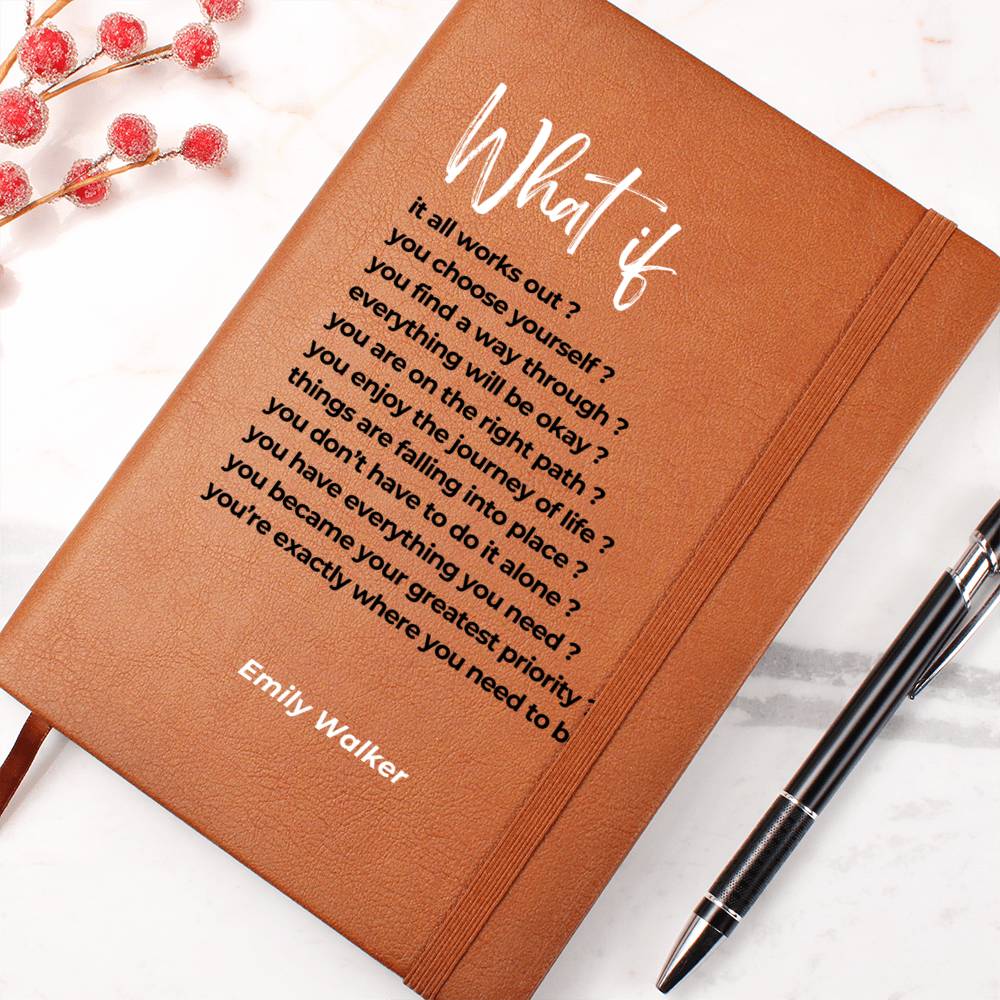 What if
it all works out ?
you choose yourself ?
you find a way through ?
everything will be okay ?
you are on the right path ?
you enjoy the journey of life ?
things are falling into place ?
you don't have to do it alone ?
you have everything you need ?
you became your greatest priority ?
you're exactly where you need to b
Emily Walker